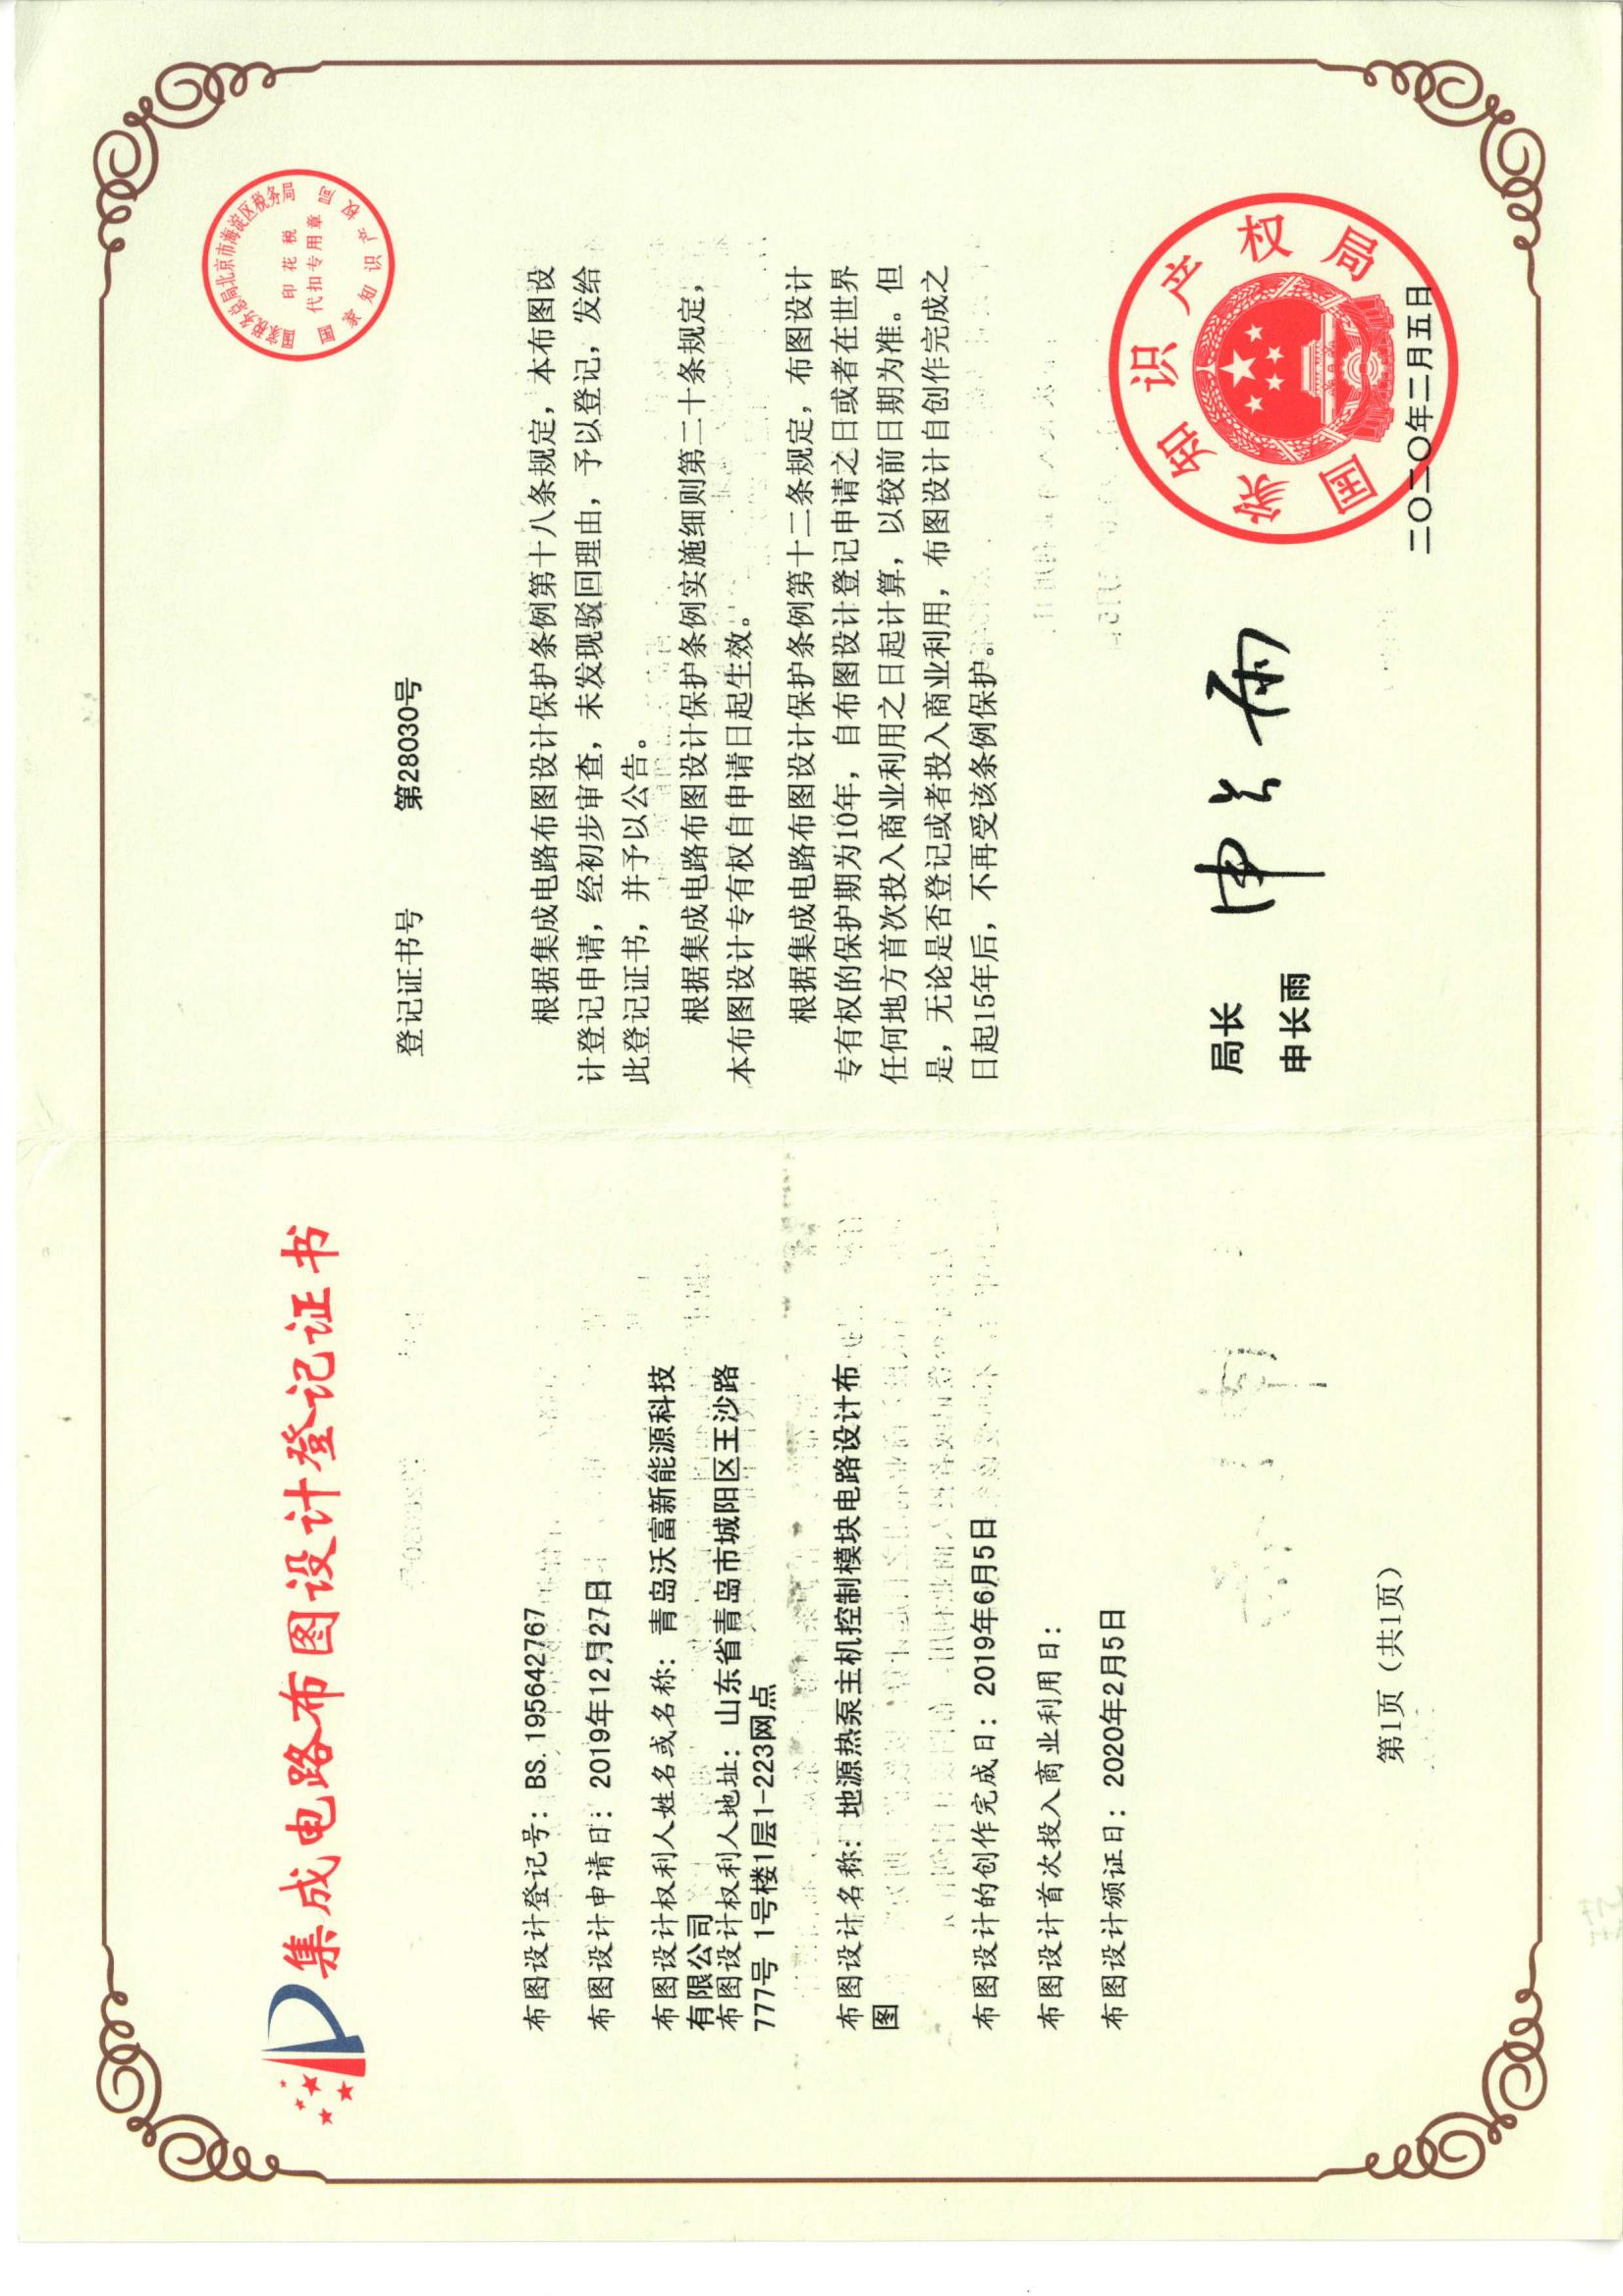 集成电路布图设计登记证书
布图设计登记号：BS.195642767
布图设计申请日：2019年12月27日
布图设计权利人姓名或名称：青岛沃富新能源科技
有限公司
布图设计权利人地址：山东省青岛市城阳区王沙路
777号 1号楼1层1-223网点
布图设计名称：地源热泵主机控制模块电路设计布
图
布图设计的创作完成日：2019年6月5日
布图设计首次投入商业利用日：
布图设计颁证日：2020年2月5日
第1页（共1页）
国家税务总局北京市海淀区税务局
印花税
代扣专用章
国家知识产权局
登记证书号 第28030号
根据集成电路布图设计保护条例第十八条规定，本布图设
计登记申请，经初步审查，未发现驳回理由，予以登记，发给
此登记证书，并予以公告。
根据集成电路布图设计保护条例实施细则第二十条规定，
本布图设计专有权自申请日起生效。
根据集成电路布图设计保护条例第十二条规定，布图设计
专有权的保护期为10年，自布图设计登记申请之日或者在世界
任何地方首次投入商业利用之日起计算，以较前日期为准。但
是，无论是否登记或者投入商业利用，布图设计自创作完成之
日起15年后，不再受该条例保护。
局长
申长雨
申长雨
国家知识产权局
二〇二〇年二月五日